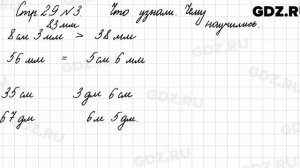 GDZ.RU
Стр. 29 № 3. Что узнали. Чему научились.
83 мм
8 см 3 мм > 38 мм
56 мм = 5 см 6 мм
35 см 3 дм 6 см
67 дм 6 м 5 дм.
GDZ.RU